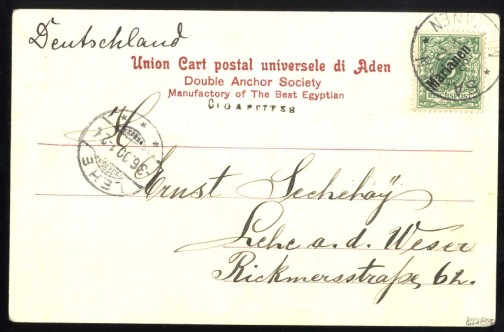 Deutschland
Union Cart postal universele di Aden
Double Anchor Society
Manufactory of The Best Egyptian
CIGARETTES
Marianen
LEHE
Ernst
Lehe a. d. Weser
Rickmersstraße, 62.